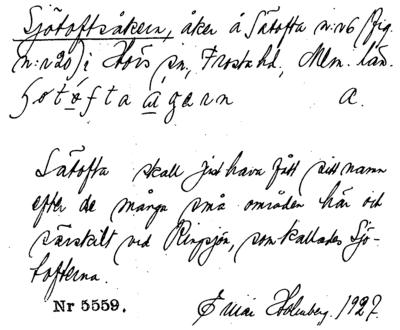 Sjötoftsåkern, åker å Sätofta n:r 6 (fig.
n:r 20) i Hörs sn, Frosta hd, Mlm. län.
a.
Sätofta skall just hava fått sitt namn
efter de många små områden här och
särskilt ved Ringsjön, som kallades Sjö-
tofterna.
Nr 5559. Holmberg. 1927.